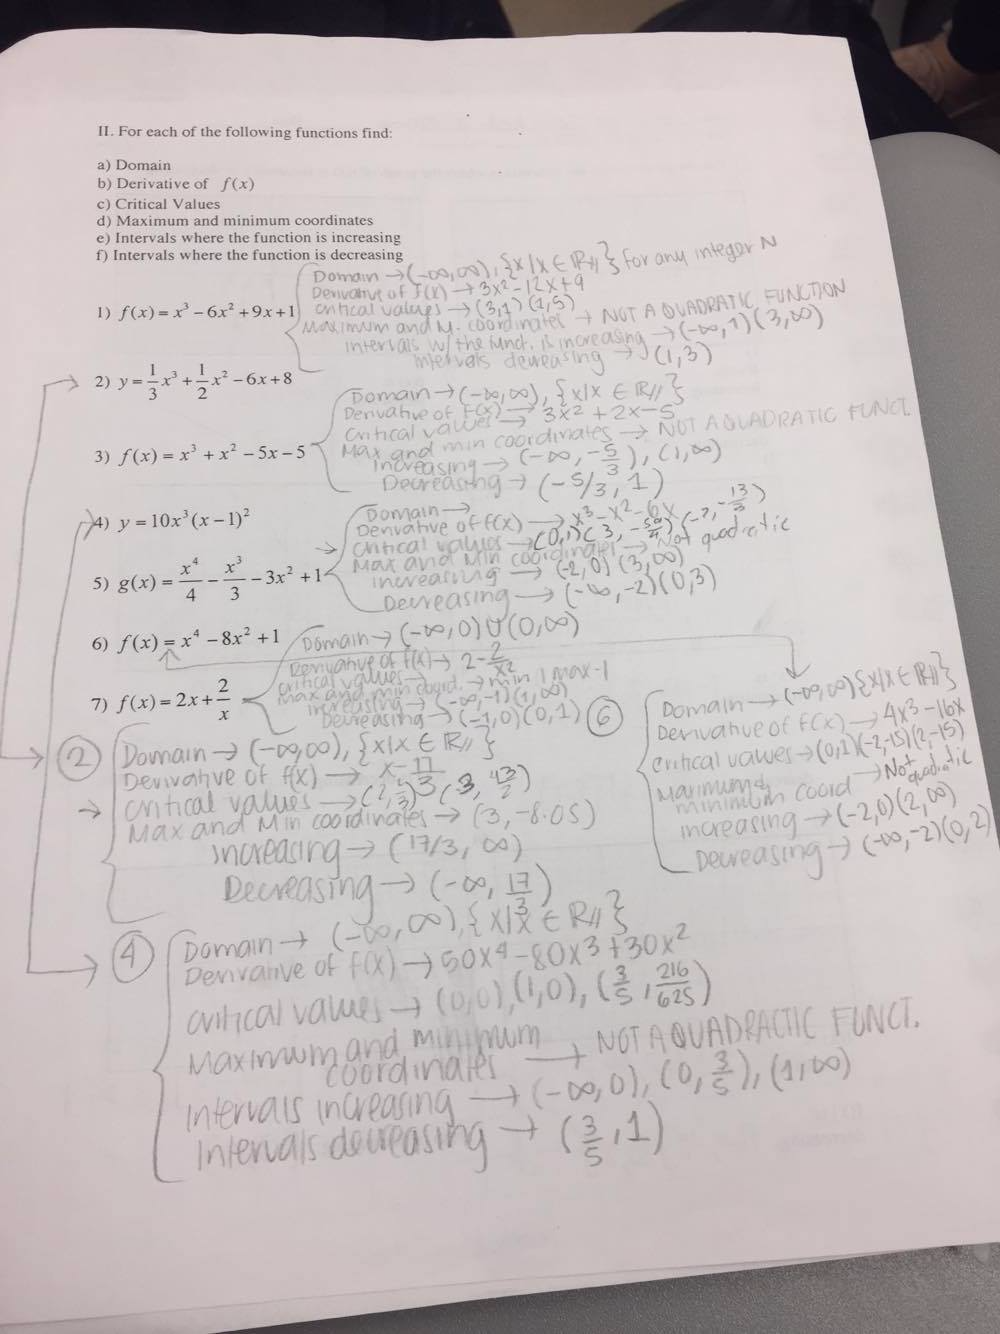 II. For each of the following functions find:
a) Domain
b) Derivative of f(x)
c) Critical Values
d) Maximum and minimum coordinates
e) Intervals where the function is increasing
f) Intervals where the function is decreasing
Domain → (-∞,∞), {x|x ∈ ℝ} for any integer N
Derivative of f(x) → 3x² - 12x + 9
1) f(x) = x³ - 6x² + 9x + 1
Critical values → (3,1) (1,5)
Maximum and M. coordinates → NOT A QUADRATIC FUNCTION
Intervals w/ the funct. is increasing → (-∞,1) (3,∞)
Intervals decreasing → (1,3)
2) y = 1/3 x³ + 1/2 x² - 6x + 8
Domain → (-∞,∞), {x|x ∈ ℝ}
Derivative of f(x) → 3x² + 2x - 5
Critical values →
3) f(x) = x³ + x² - 5x - 5
Max and min coordinates → NOT A QUADRATIC FUNCT
Increasing → (-∞, -5/3), (1,∞)
Decreasing → (-5/3, 1)
4) y = 10x³(x-1)²
Domain →
Derivative of f(x) → x³ - x² - 6x
Critical values → (0,1) (3, (-2, -13/3)
Max and Min coordinates → Not quadratic
5) g(x) = x⁴/4 - x³/3 - 3x² + 1
increasing → (-2,0) (3,∞)
Decreasing → (-∞,-2) (0,3)
6) f(x) = x⁴ - 8x² + 1
Domain → (-∞,0) ∪ (0,∞)
Derivative of f(x) → 2 - 2/x²
Critical values →
Max and min coord. → min 1 max -1
7) f(x) = 2x + 2/x
increasing → (-∞,-1) (1,∞)
Decreasing → (-1,0) (0,1)
6
Domain → (-∞,∞) {x|x ∈ ℝ}
Derivative of f(x) → 4x³ - 16x
Critical values → (0,1) (-2,-15) (2,-15)
Maximum &
minimum coord → Not quadratic
increasing → (-2,0) (2,∞)
Decreasing → (-∞,-2) (0,2)
2
Domain → (-∞,∞), {x|x ∈ ℝ}
Derivative of f(x) → x - 17/3
→ critical values → (2, 2/3) (3, 43/2)
Max and Min coordinates → (3, -8.05)
Increasing → (17/3, ∞)
Decreasing → (-∞, 17/3)
4
Domain → (-∞,∞), {x|x ∈ ℝ}
Derivative of f(x) → 50x⁴ - 80x³ + 30x²
critical values → (0,0), (1,0), (3/5, 216/625)
Maximum and minimum
coordinates → NOT A QUADRACTIC FUNCT.
Intervals increasing → (-∞,0), (0, 3/5), (1,∞)
Intervals decreasing → (3/5, 1)